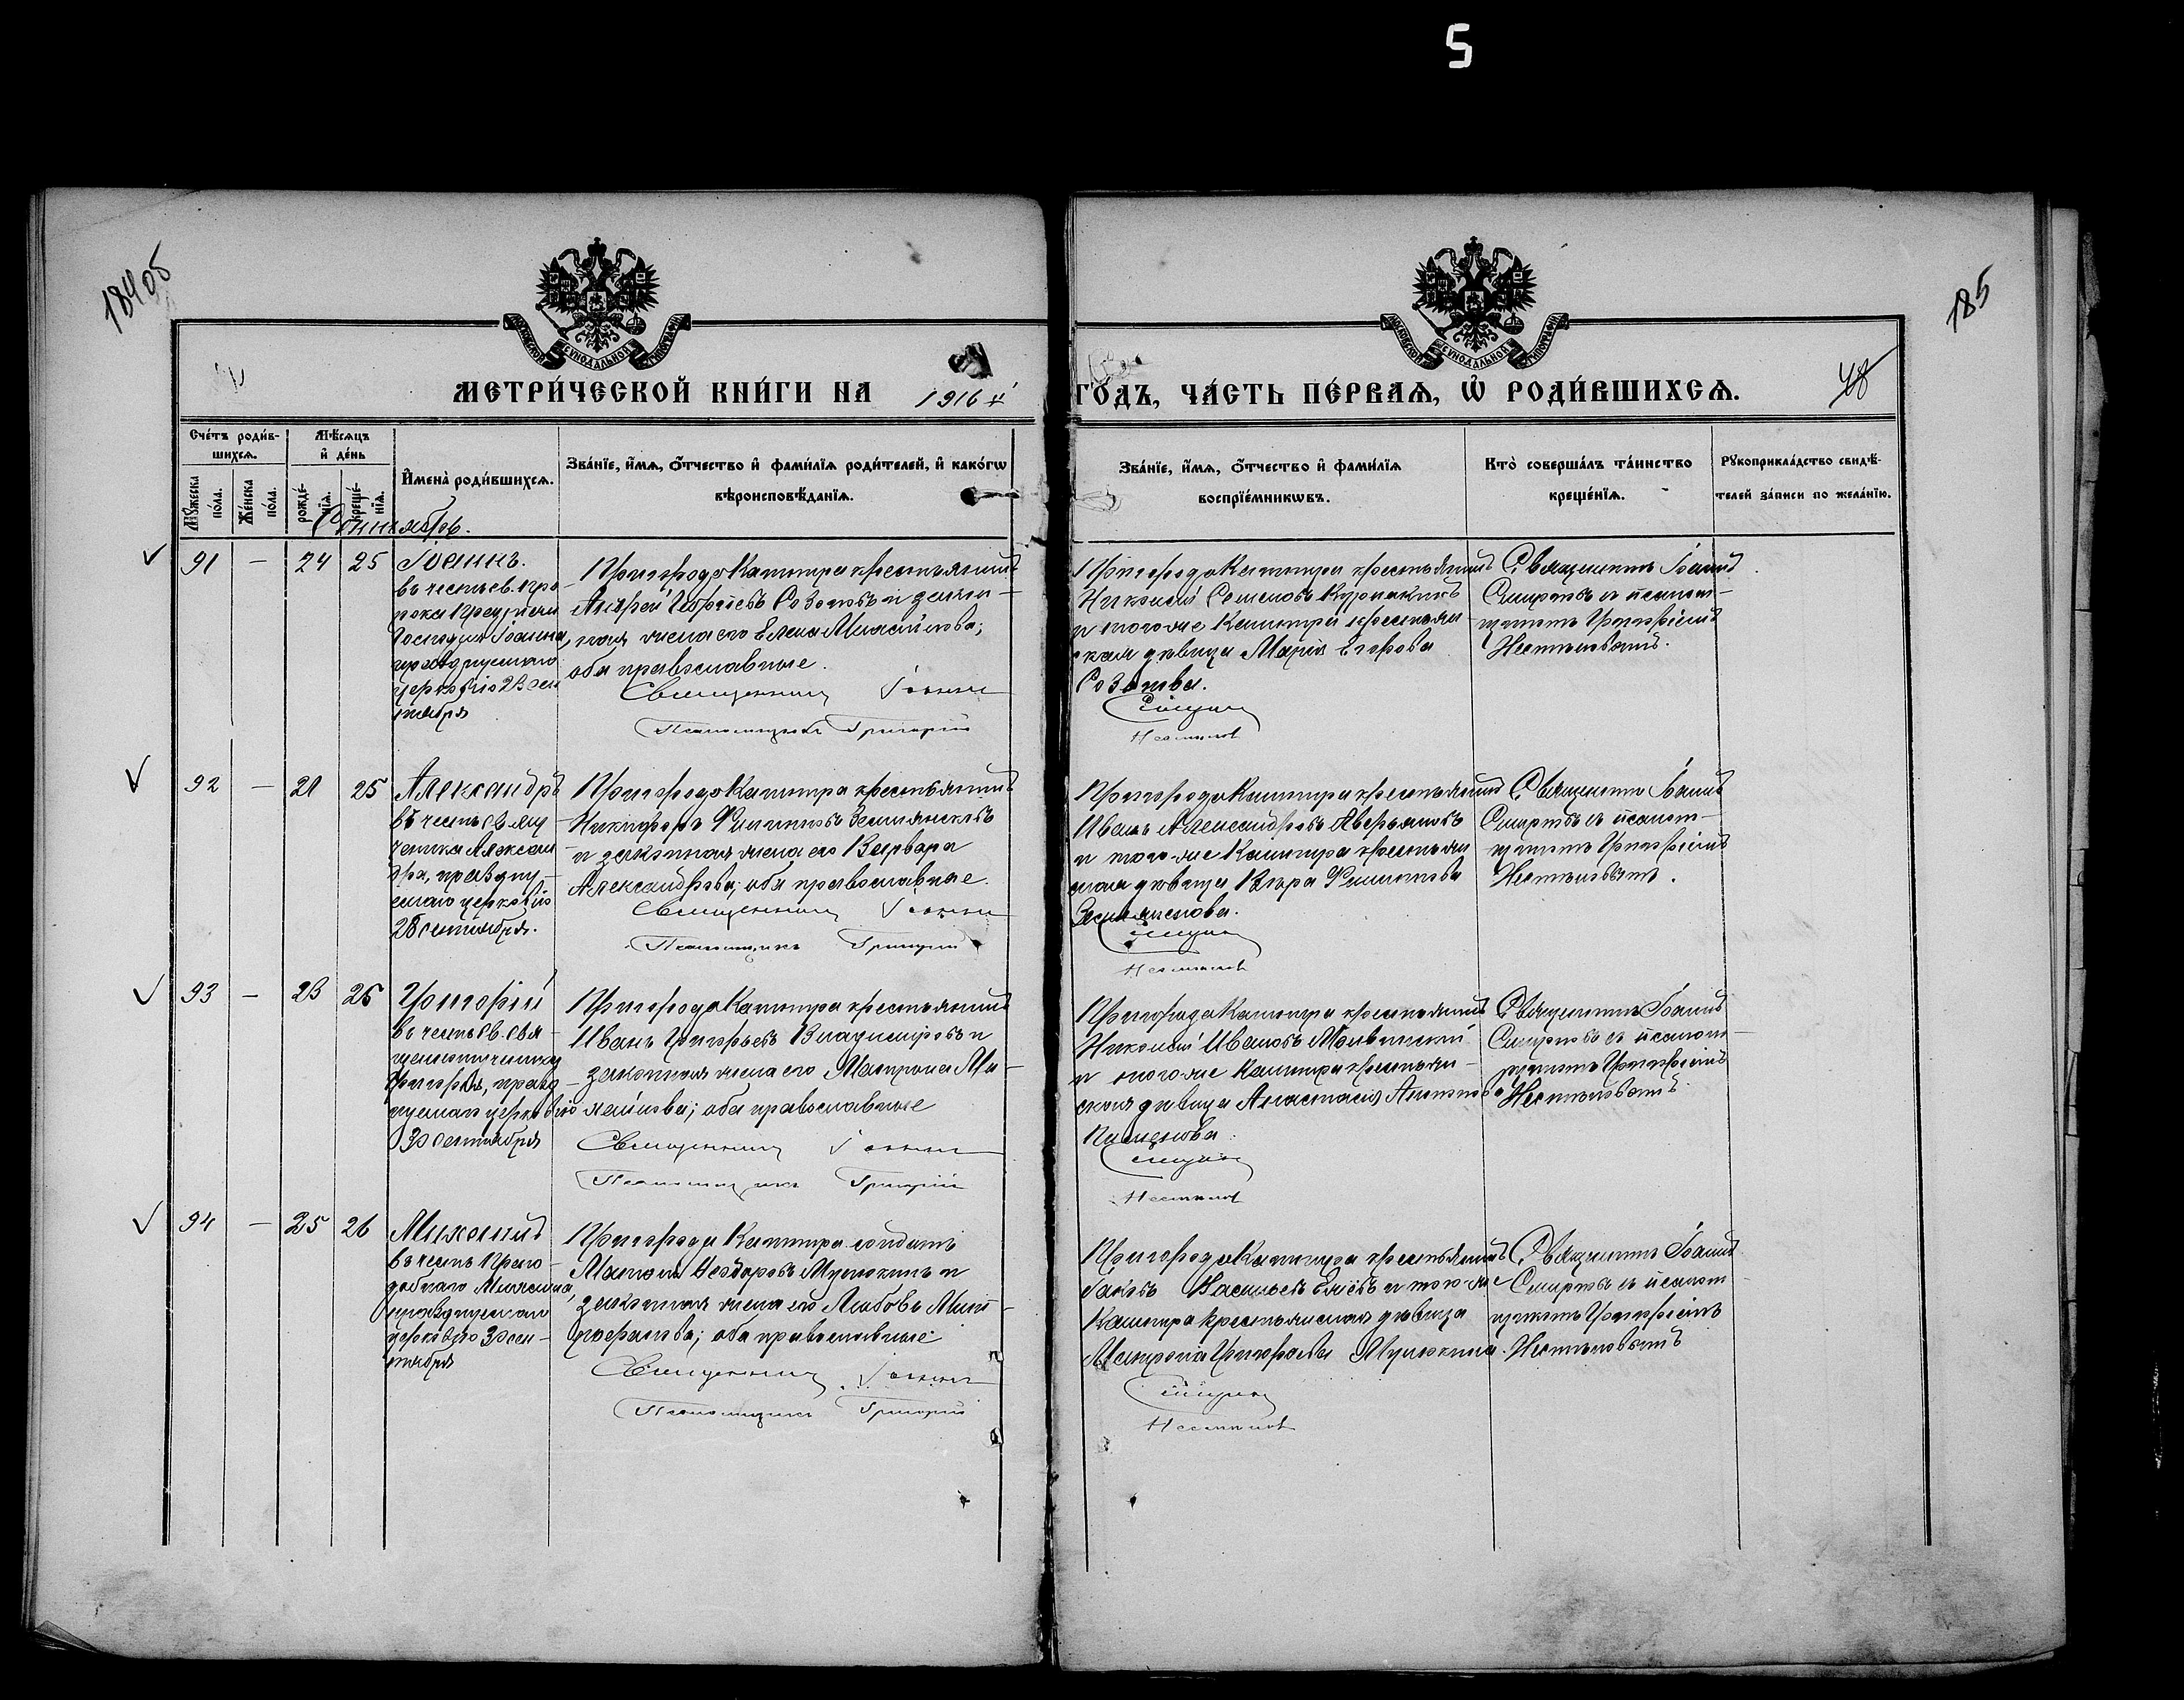 5
185
МЕТРИ́ЧЕСКОЙ КНИ́ГИ НА 1916 й
ГО́ДЪ, ЧА́СТЬ ПЕ́РВАѦ, Ѡ҆ РОДИ́ВШИХСѦ.
48
Сче́тъ роди́в-
шихсѧ.
Мѣ́сѧцъ
и҆ де́нь
Мꙋ́жеска
по́ла.
Же́нска
по́ла.
рожде́-
нїѧ.
креще́-
нїѧ.
И҆мена̀ роди́вшихсѧ.
Зва́нїе, и҆́мѧ, ѻ҆́тчество и҆ фами́лїѧ роди́телей, и҆ како́гѡ
вѣроисповѣ́данїѧ.
Зва́нїе, и҆́мѧ, ѻ҆́тчество и҆ фами́лїѧ
воспрїе́мникѡвъ.
Кто̀ соверша́лъ та́инство
креще́нїѧ.
Рꙋкоприкла́дство свидѣ́-
телей за́писи по жела́нїю.
Сентябрь.
91 — 24 25
Іоаннъ.
въ честь св. про
рока Предтечи
Господня Іоанна,
празднуемаго
церковію 23 сен
тября
Пригорода Каншира крестьянинъ
Андрей Георгіевъ Созоновъ и закон-
ная жена его Елена
оба православные.
Священникъ Іоаннъ
Псаломщикъ Григорій
Пригорода Каншира крестьянинъ
Николай Семеновъ Курмакинъ
и того-же Каншира крестьян
ская дѣвица Марія Егорова
Созонова.
Смирновъ
Священникъ Іоаннъ
Смирновъ съ псалом-
щикомъ Григоріемъ
92 — 21 25
Александръ
въ честь св. му
ченика Алексан
дра, праздну-
емаго церковію
28 сентября.
Пригорода Каншира крестьянинъ
Никифоръ Филипповъ Землянсковъ
и законная жена его Варвара
Александрова; оба православные.
Священникъ Іоаннъ
Псаломщикъ Григорій
Пригорода Каншира крестьянинъ
Иванъ Александровъ Аверьяновъ
и того-же Каншира крестьян
ская дѣвица Вѣра Филиппова
Землянскова.
Смирновъ
Священникъ Іоаннъ
Смирновъ съ псалом-
щикомъ Григоріемъ
93 — 23 26
Григорій
въ честь св. свя-
щенномученика
Григорія, празд-
нуемаго церковію
30 сентября
Пригорода Каншира крестьянинъ
Иванъ Григорьевъ Владиміровъ и
законная жена его Матрона Ми-
хайлова; оба православные
Священникъ Іоаннъ
Псаломщикъ Григорій
Пригорода Каншира крестьянинъ
Николай Ивановъ
и того-же Каншира крестьян-
ская дѣвица Анастасія Антонова
Пименова.
Смирновъ
Священникъ Іоаннъ
Смирновъ съ псалом-
щикомъ Григоріемъ
94 — 25 26
Михаилъ
въ честь Препо-
добнаго Михаила,
празднуемаго
церковію 30 сен-
тября
Пригорода Каншира солдатъ
Ѳеодоровъ и
законная жена его Любовь
оба православные
Священникъ Іоаннъ
Псаломщикъ Григорій
Пригорода Каншира крестьянинъ
Яковъ Васильевъ и того-же
Каншира крестьянская дѣвица
Матрона Григорьева
Смирновъ
Священникъ Іоаннъ
Смирновъ съ псалом-
щикомъ Григоріемъ